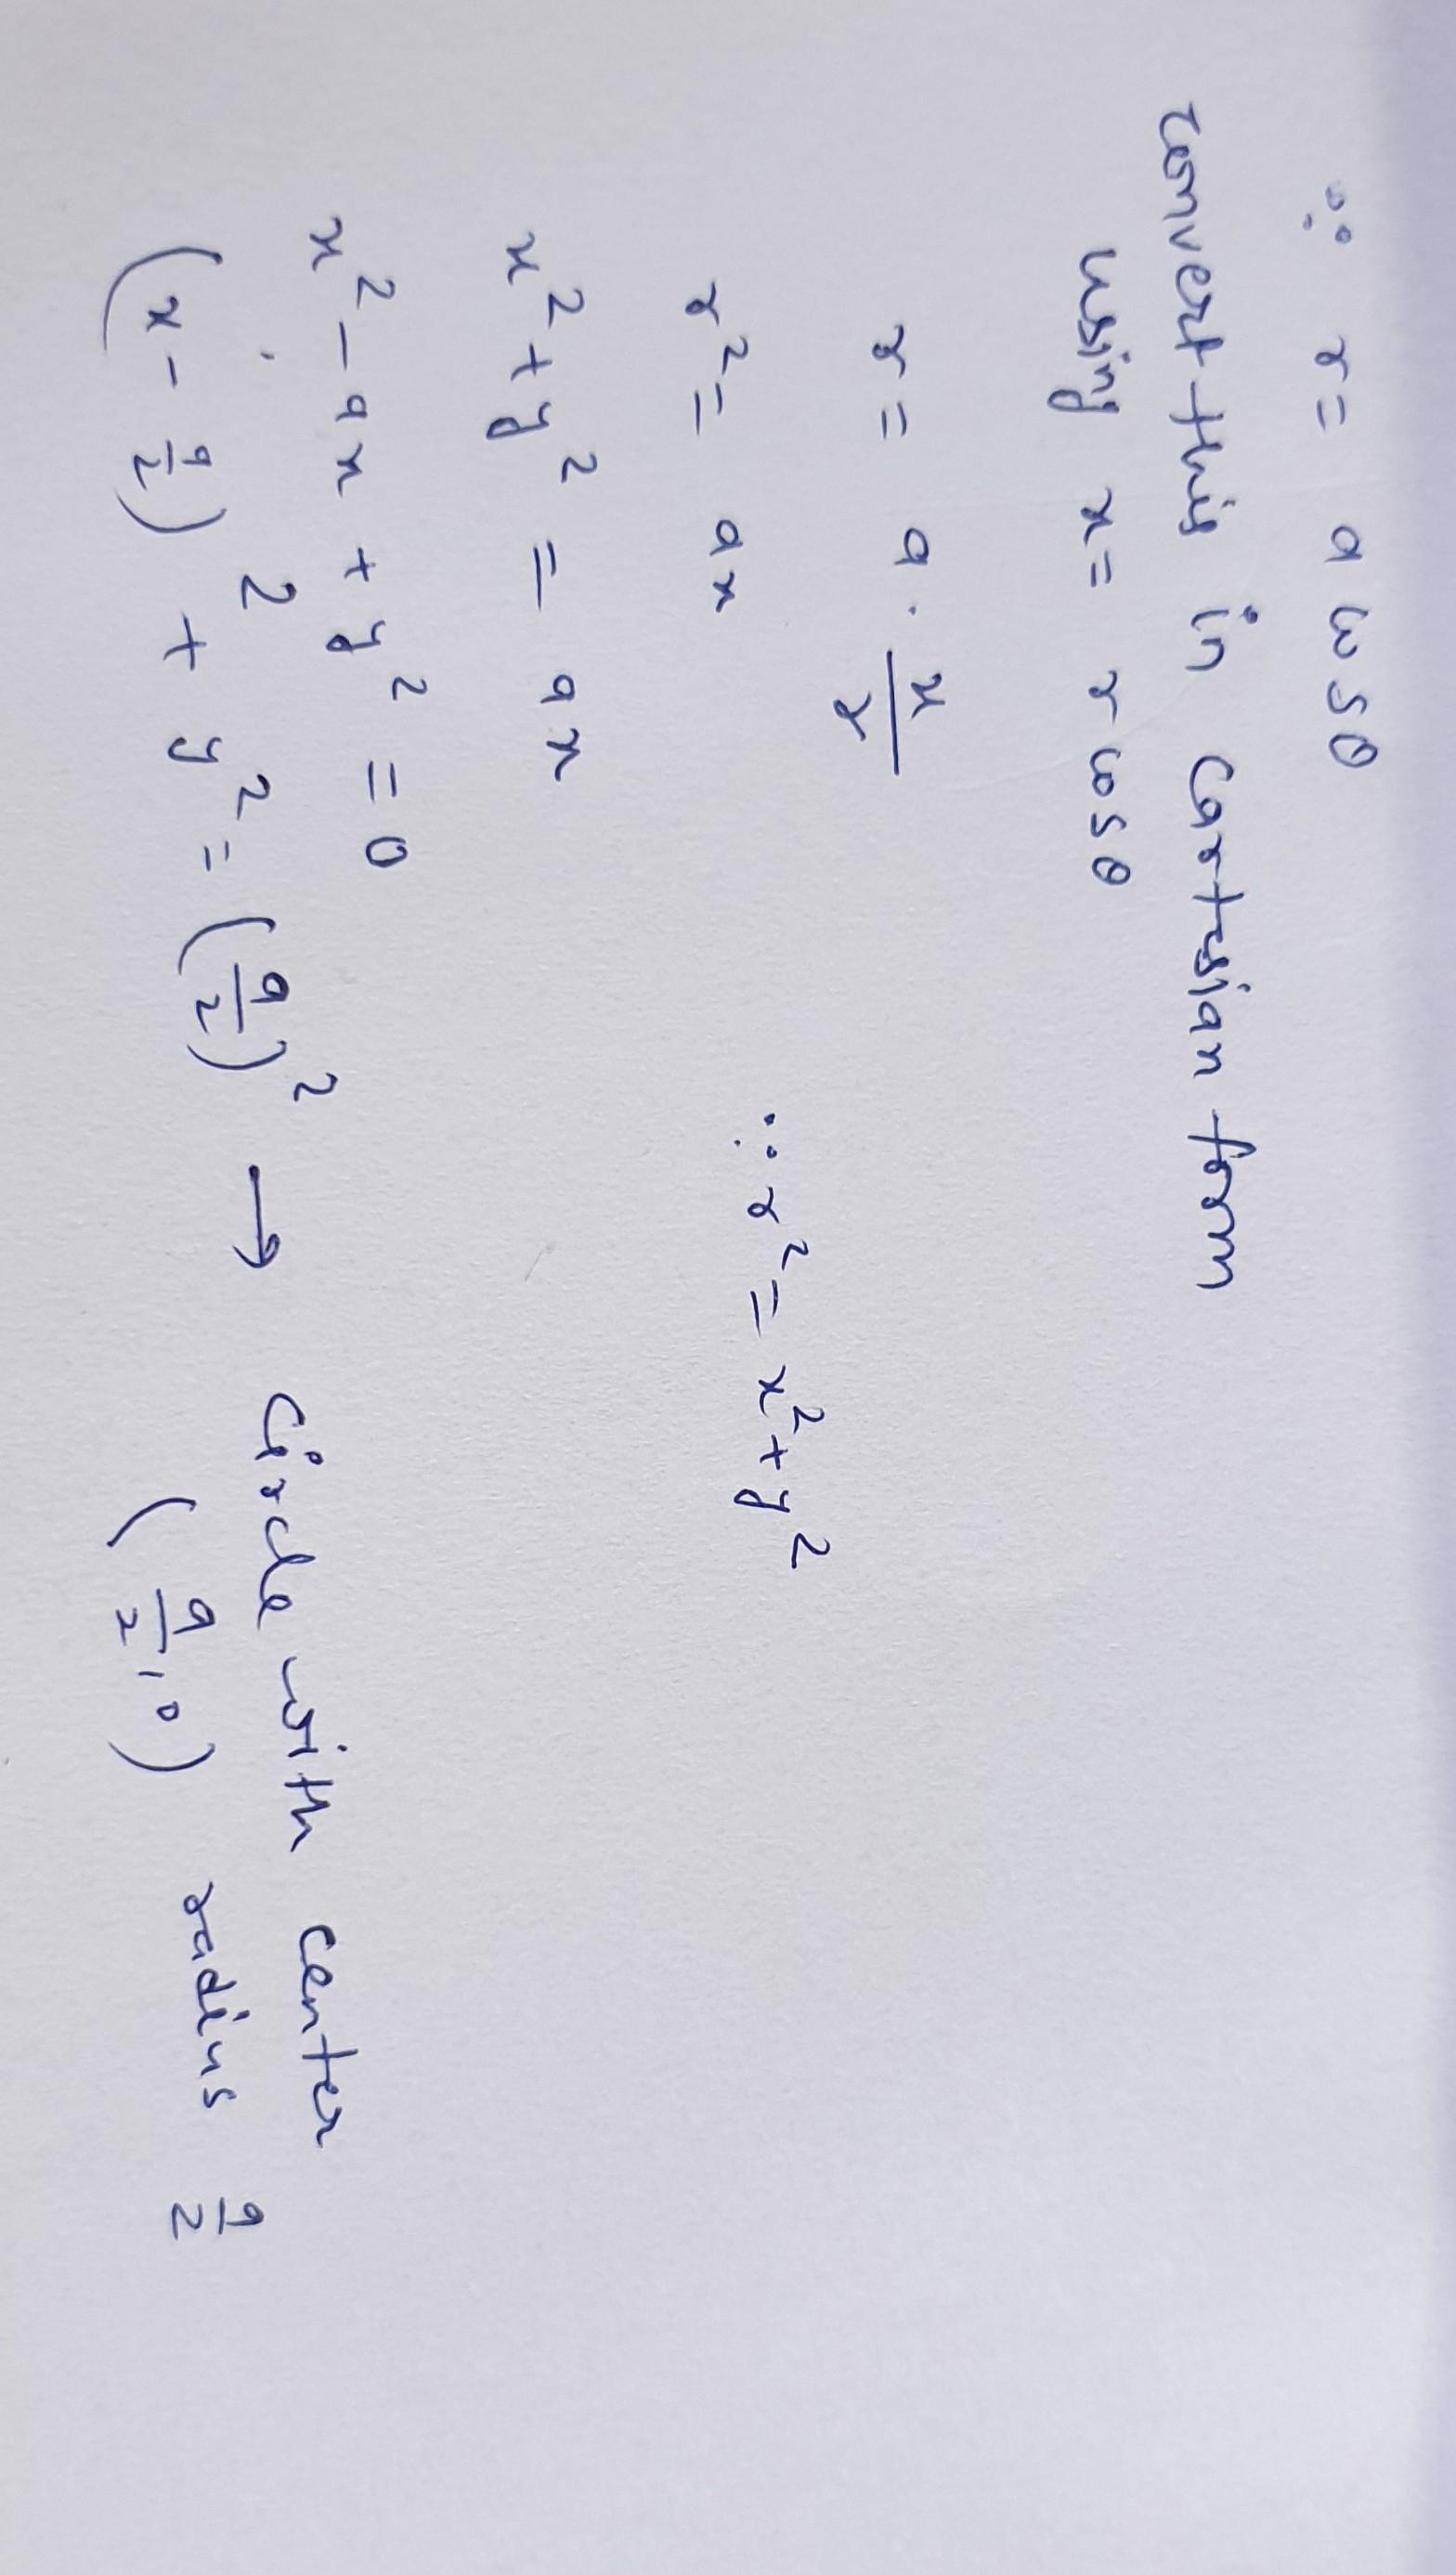 ∵ r = a cosθ
convert this in cartesian form
using x = r cosθ
r = a . x/r
r² = ax ∵ r² = x² + y²
x² + y² = ax
x² - ax + y² = 0
(x - a/2)² + y² = (a/2)² → circle with center
(a/2, 0) radius a/2